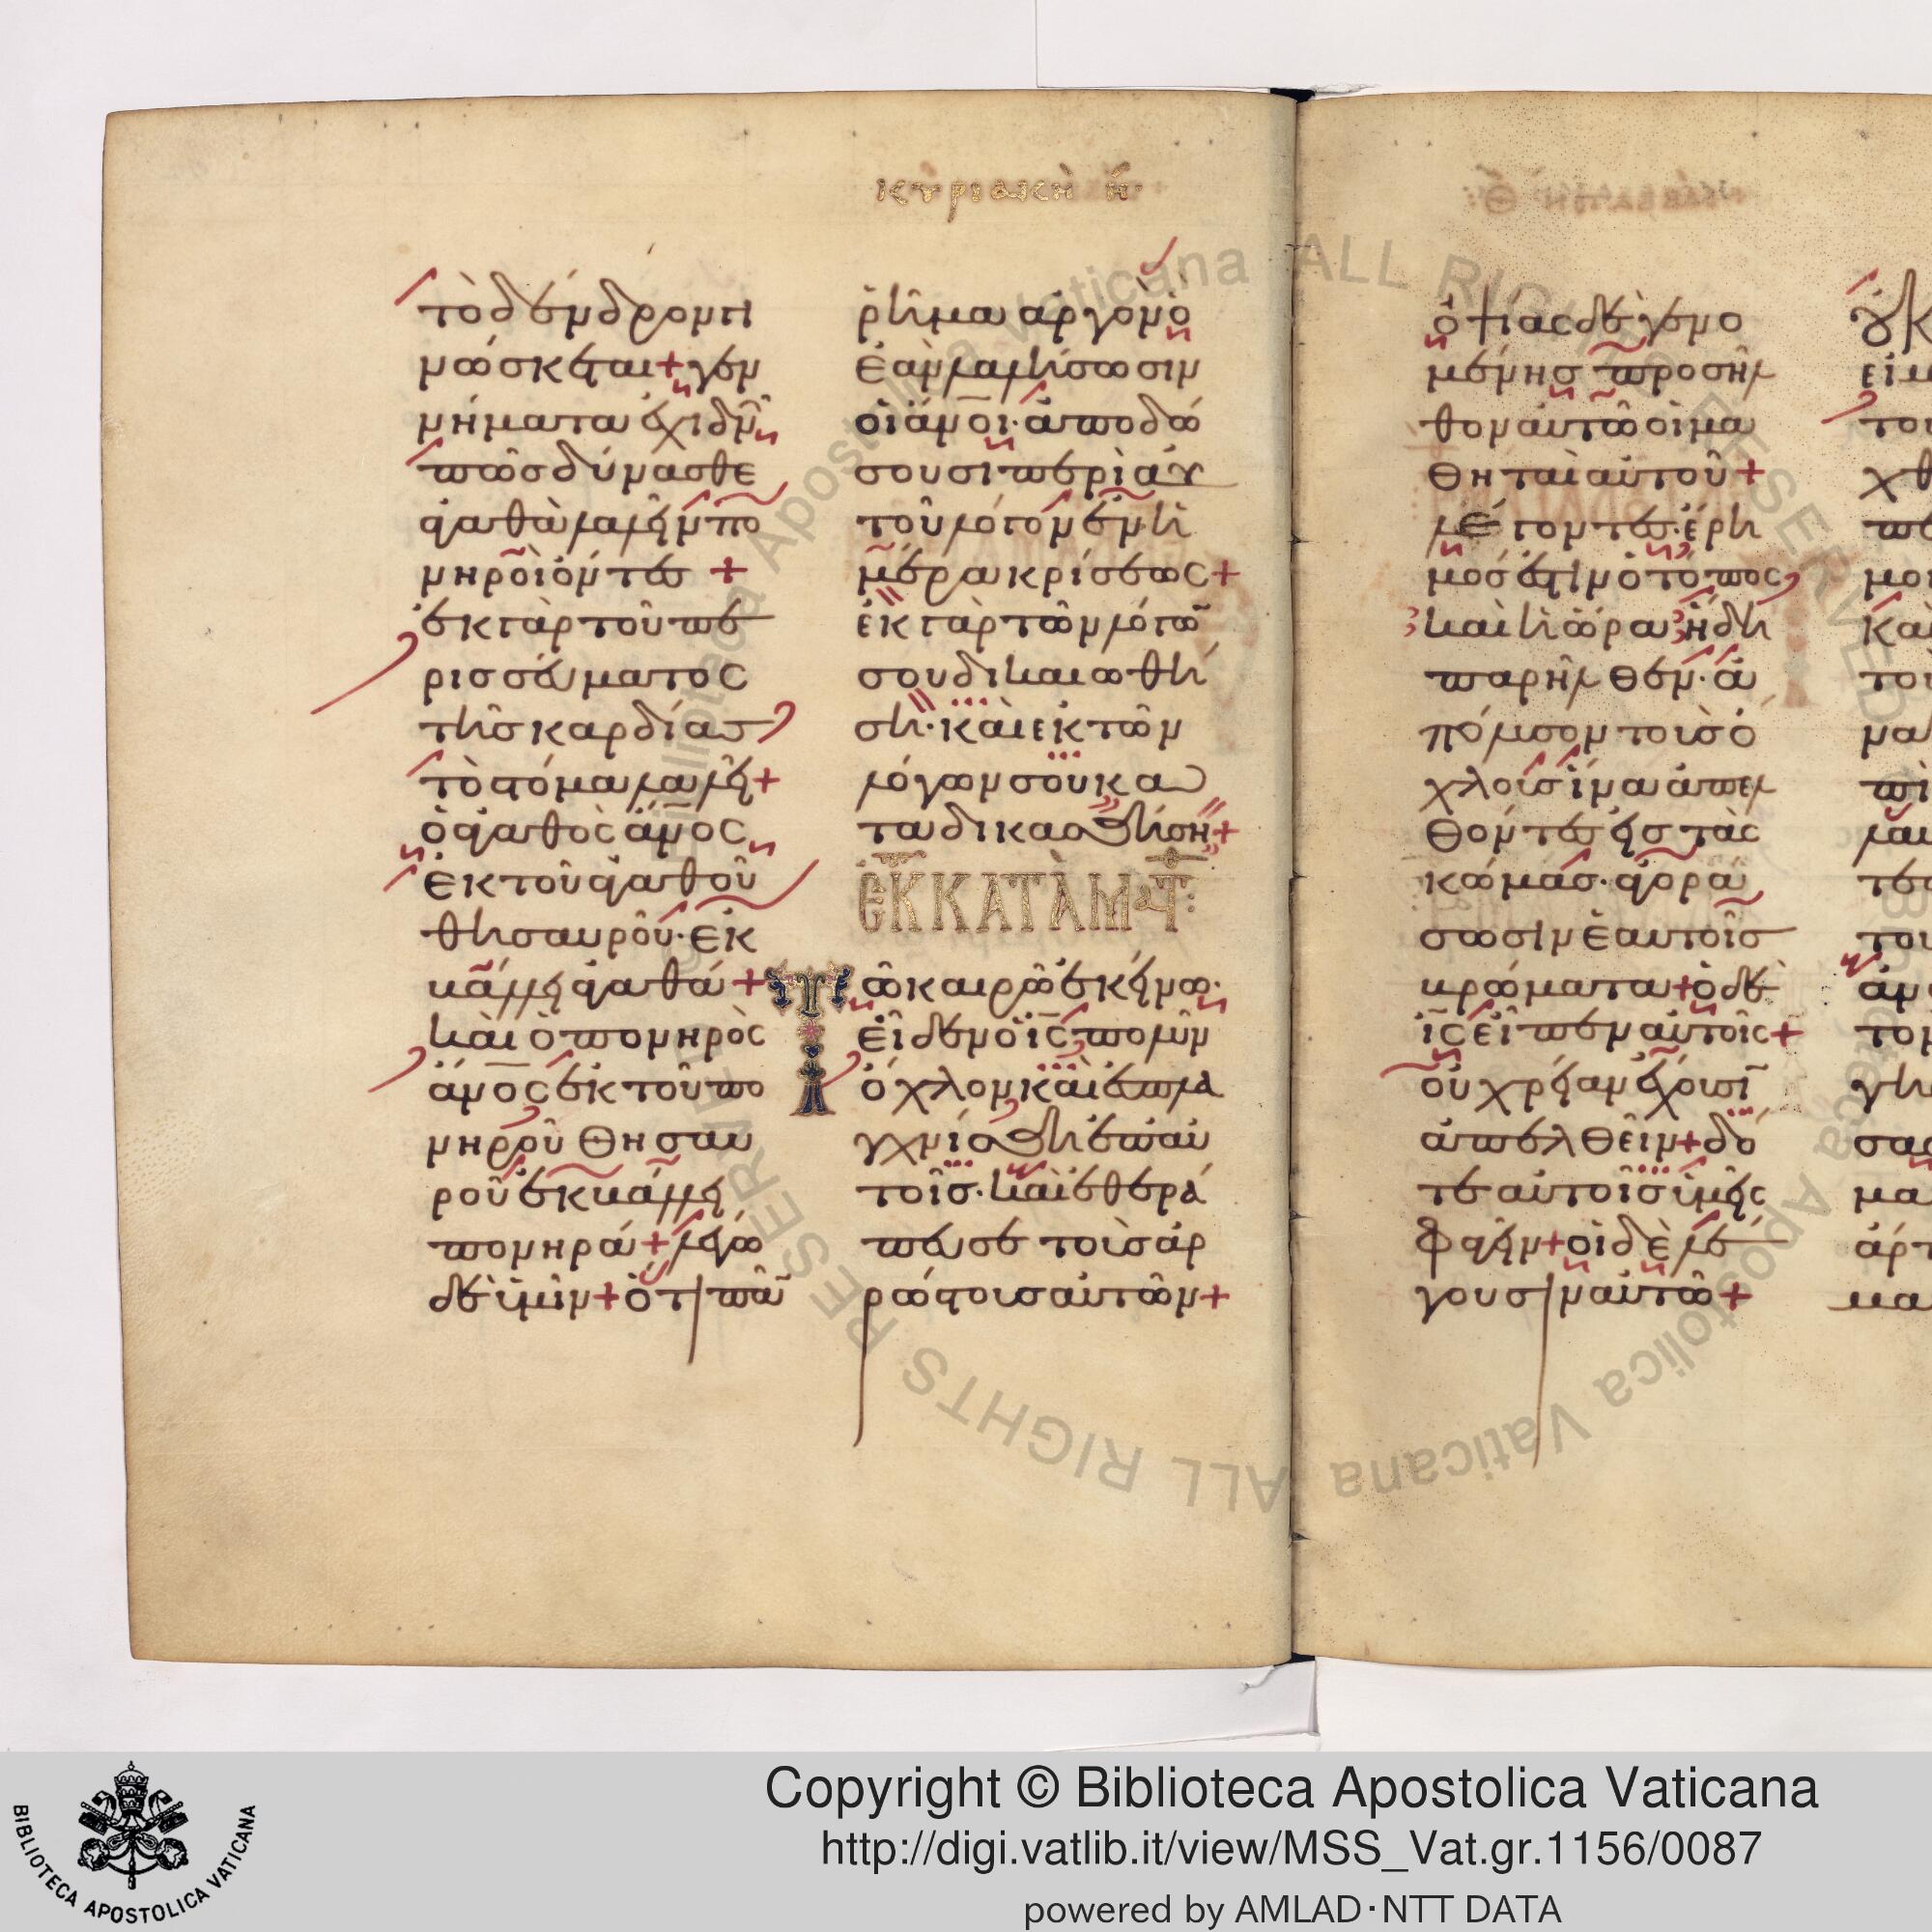 κυριακὴ η
τὸ δένδρον γι
νώσκεται + γεν
νήματα ἐχιδνῶ
πῶς δύνασθε
ἀγαθὰ λαλεῖν πο
νηροὶ ὄντες +
ἐκ γὰρ τοῦ πε
ρισσεύματος
τῆς καρδίας
τὸ στόμα λαλεῖ +
ὁ ἀγαθὸς ἄνος
ἐκ τοῦ ἀγαθοῦ
θησαυροῦ· ἐκ
βάλλει ἀγαθά +
καὶ ὁ πονηρὸς
ἄνος ἐκ τοῦ πο
νηροῦ θησαυ
ροῦ ἐκβάλλει
πονηρά + λέγω
δὲ ὑμῖν + ὅτι πᾶ
ῥῆμα ἀργὸν ὃ
ἐὰν λαλήσωσιν
οἱ ἄνοι· ἀποδώ
σουσι περὶ αὐ
τοῦ λόγον ἐν ἡ
μέρα κρίσεως +
ἐκ γὰρ τῶν λόγω
σου δικαιωθή
ση· καὶ ἐκ τῶν
λόγων σου κα
ταδικασθήση +
ΕΚ ΚΑΤΑ ΜΑΤ
Τῶ καιρῶ ἐκείνω·
εἶδεν ὁ ις πολὺν
ὄχλον καὶ ἐσπλα
γχνίσθη ἐπ αὐ
τοῖς· καὶ ἐθερά
πευσε τοὺς ἀρ
ρώστους αὐτῶν +
ὀψίας δὲ γενο
μένης προσῆλ
θον αὐτῶ οἱ μα
θηταὶ αὐτοῦ +
λέγοντες· ἔρη
μός ἐστιν ὁ τόπος
καὶ ἡ ὥρα ἤδη
παρῆλθεν· ἀ
πόλυσον τοὺς ὄ
χλους ἵνα ἀπελ
θόντες εἰς τὰς
κώμας· ἀγορά
σωσιν ἑαυτοῖς
βρώματα + ὁ δὲ
ις εἶπεν αὐτοῖς +
οὐ χρείαν ἔχουσι
ἀπελθεῖν + δό
τε αὐτοῖς ὑμεῖς
φαγεῖν + οἱ δὲ λέ
γουσιν αὐτῶ +
Copyright © Biblioteca Apostolica Vaticana
http://digi.vatlib.it/view/MSS_Vat.gr.1156/0087
powered by AMLAD·NTT DATA
BIBLIOTECA APOSTOLICA VATICANA